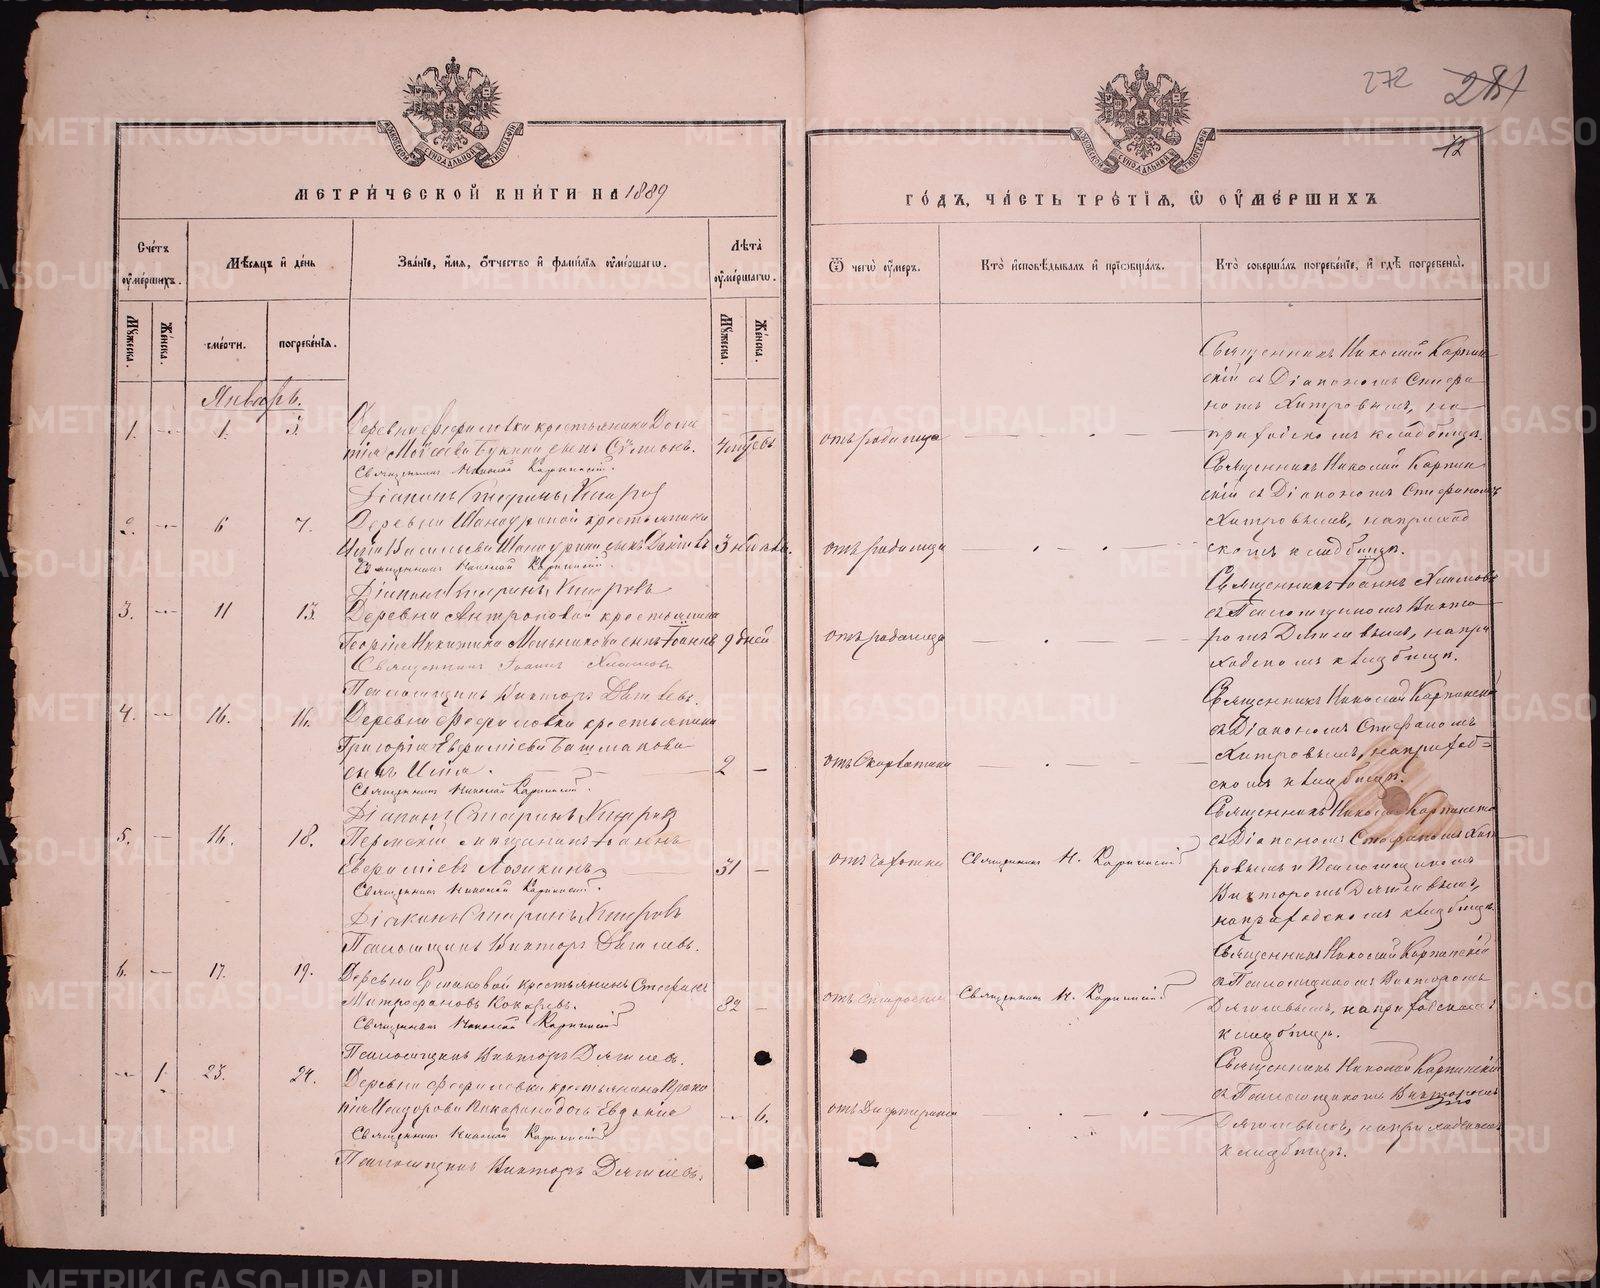 272
281
12
МОСКОВСКОЙ СѴНОДАЛЬНОЙ ТИПОГРАФІИ
МОСКОВСКОЙ СѴНОДАЛЬНОЙ ТИПОГРАФІИ
МЕТРИ́ЧЕСКОЙ КНИ́ГИ НА 1889
ГО́ДЪ, ЧА́СТЬ ТРЕ́ТІѦ, Ѿ ОУ҆МЕ́РШИХЪ
Сче́тъ оу҆ме́ршихъ.
Мѣ́сѧцъ и҆ де́нь
Зва́нїе, и҆́мѧ, ѻ҆́тчество и҆ фами́лїѧ оу҆ме́ршагѡ.
Лѣ́та оу҆ме́ршагѡ.
Ѿ чегѡ̀ оу҆́меръ.
Кто̀ и҆сповѣ́дывалъ и҆ прїѡбща́лъ.
Кто̀ соверша́лъ погребе́нїе, и҆ гдѣ̀ погребены̀.
Мꙋ́жеска.
Же́нска.
сме́рти.
погребе́нїѧ.
Мꙋ́жеска.
Же́нска.
Январь.
1. 1. 3.
Деревни Феофиловки крестьянина
сынъ Сѷмеонъ.
Священникъ Николай Карпинскій.
Діаконъ Стефанъ Хитровъ
отъ родимца
Священникъ Николай Карпин
скій съ Діакономъ Стефа
номъ Хитровымъ, на
приходскомъ кладбищѣ.
2. 6 7.
Деревни крестьянина
Васильева сынъ
Священникъ Николай Карпинскій.
Діаконъ Стефанъ Хитровъ
отъ родимца
Священникъ Николай Карпин
скій съ Діакономъ Стефаномъ
Хитровымъ, на приход
скомъ кладбищѣ.
3. 11 13.
Деревни Антроповой крестьянина
Георгія Мельникова сынъ Іоаннъ 9 дней
Священникъ Іоаннъ Хламовъ
Псаломщикъ Викторъ Дягилевъ.
отъ родимца
Священникъ Іоаннъ Хламовъ
съ Псаломщикомъ Викто
ромъ Дягилевымъ, на при
ходскомъ кладбищѣ.
4. 16. 16.
Деревни Феофиловки крестьянина
Григорія Евфиміева Башмакова
сынъ Илія. 2
Священникъ Николай Карпинскій.
Діаконъ Стефанъ Хитровъ
отъ скарлатины
Священникъ Николай Карпинскій
съ Діакономъ Стефаномъ
Хитровымъ, на приход-
скомъ кладбищѣ.
5. 16. 18.
Пермскій мѣщанинъ Іоаннъ
Евфиміевъ 31
Священникъ Николай Карпинскій.
Діаконъ Стефанъ Хитровъ
Псаломщикъ Викторъ Дягилевъ.
отъ чахотки
Священникъ Н. Карпинскій
Священникъ Николай Карпинскій
съ Діакономъ Стефаномъ Хит
ровымъ и Псаломщикомъ
Викторомъ Дягилевымъ,
на приходскомъ кладбищѣ.
6. 17. 19.
Деревни Ермаковой крестьянинъ Стефанъ
Митрофановъ 82
Священникъ Николай Карпинскій
Псаломщикъ Викторъ Дягилевъ.
отъ старости
Священникъ Н. Карпинскій
Священникъ Николай Карпинскій
съ Псаломщикомъ Викторомъ
Дягилевымъ, на приходскомъ
кладбищѣ.
1. 23. 24.
Деревни Феофиловки крестьянина Проко
пія дочь Евдокія 6.
Священникъ Николай Карпинскій
Псаломщикъ Викторъ Дягилевъ.
отъ дифтерита
Священникъ Николай Карпинскій
съ Псаломщикомъ Викторомъ
Дягилевымъ, на приходскомъ
кладбищѣ.
METRIKI.GASO-URAL.RU